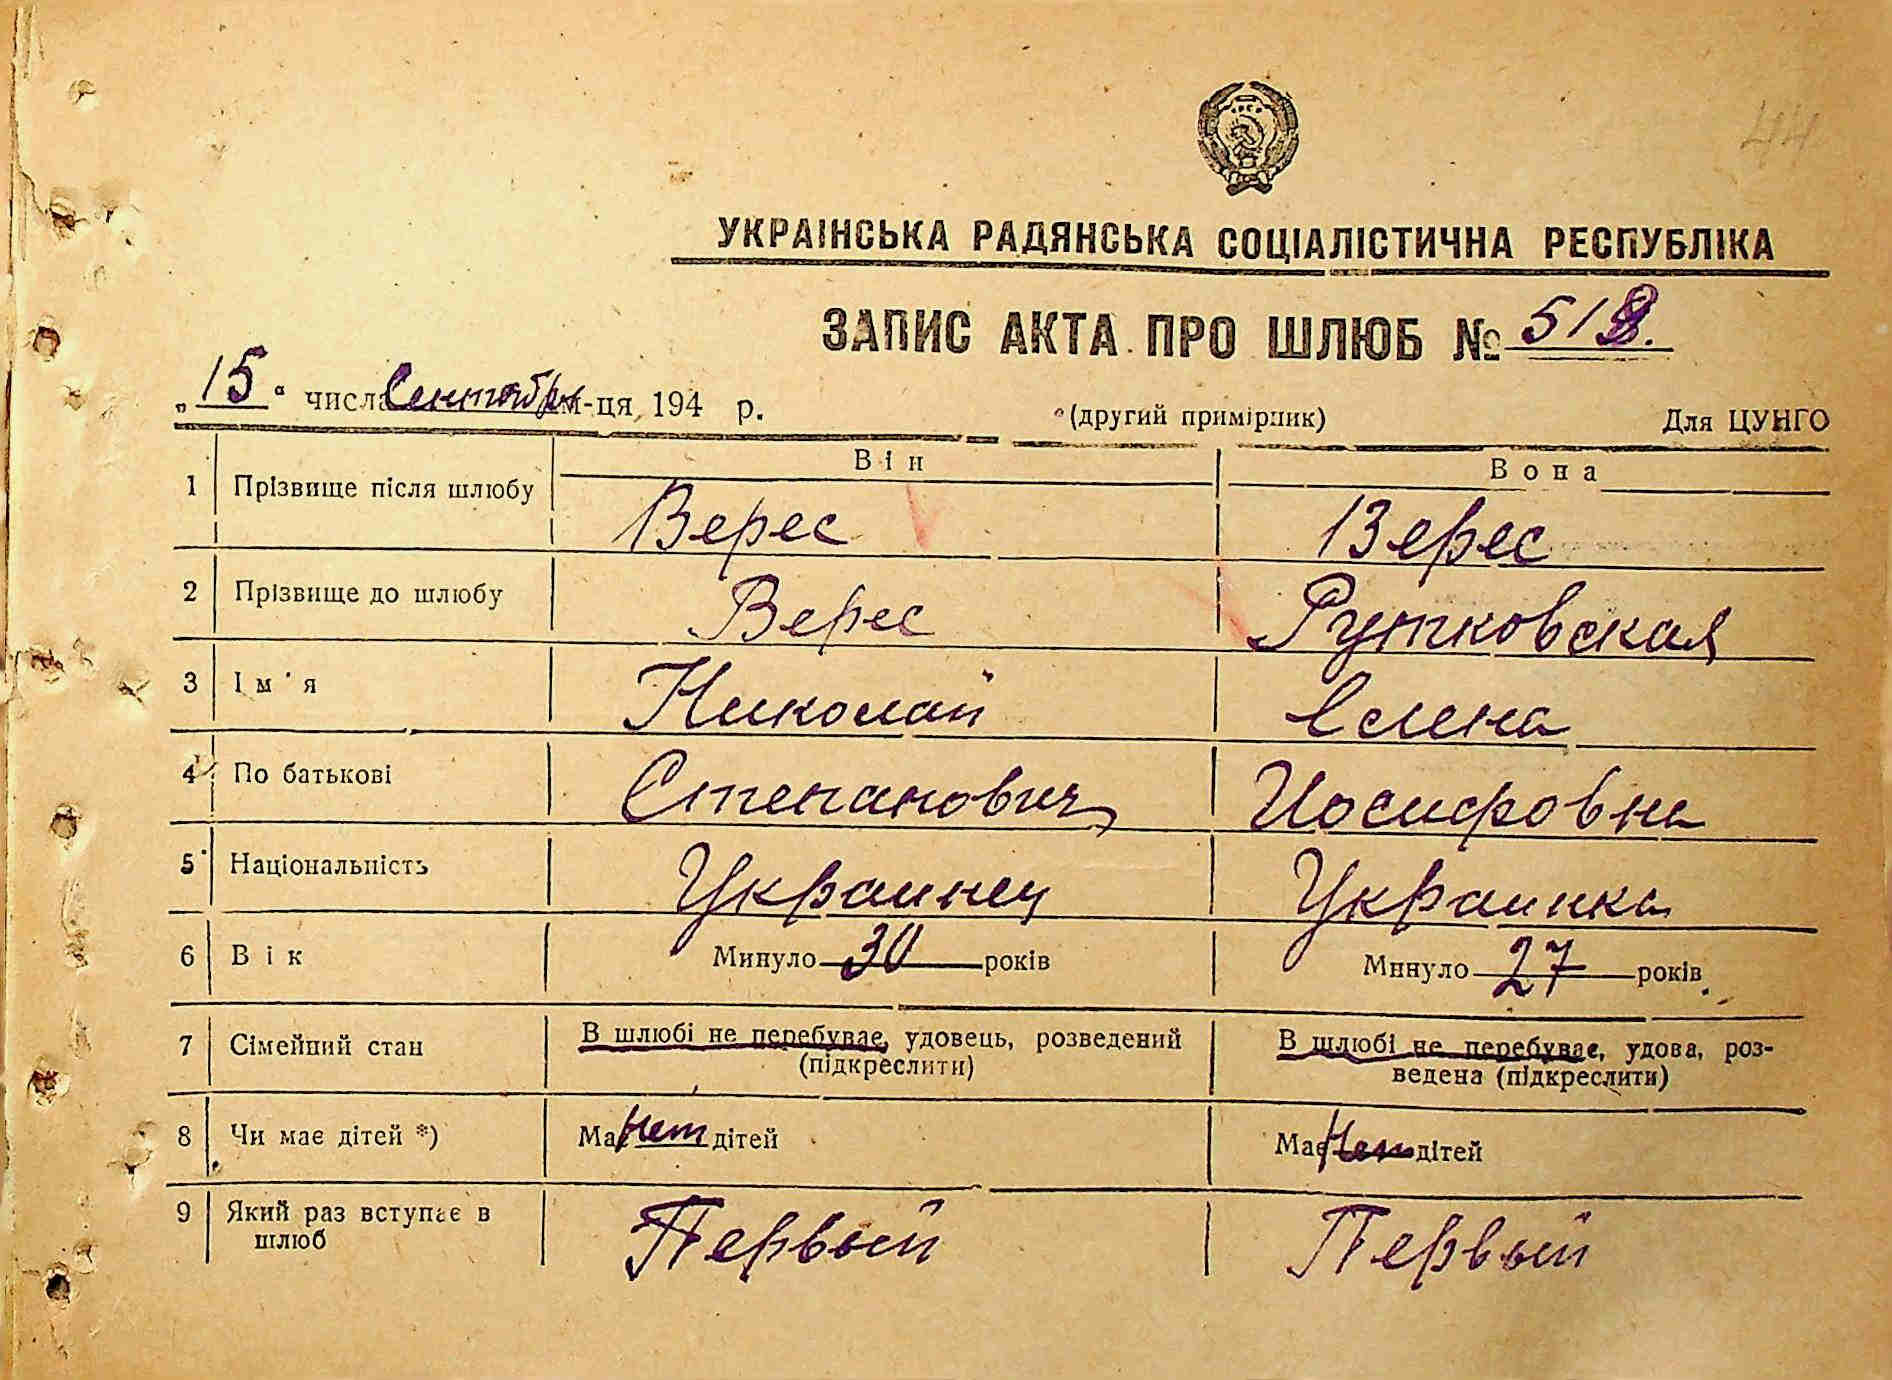 44
УКРАІНСЬКА РАДЯНСЬКА СОЦІАЛІСТИЧНА РЕСПУБЛІКА
ЗАПИС АКТА ПРО ШЛЮБ №
„15“ числа Сентября м-ця 194 р. (другий примірник) Для ЦУНГО
Він Вона
1 Прізвище після шлюбу Верес Верес
2 Прізвище до шлюбу Верес Рутковская
3 Ім'я Николай Елена
4 По батькові Степанович Иосифовна
5 Національність Украинец Украинка
6 Вік Минуло 30 років Минуло 27 років
7 Сімейний стан В шлюбі не перебуває, удовець, розведений В шлюбі не перебуває, удова, роз-
(підкреслити) ведена (підкреслити)
8 Чи має дітей *) Має Нет дітей Має Нет дітей
9 Який раз вступає в Первый Первый
шлюб